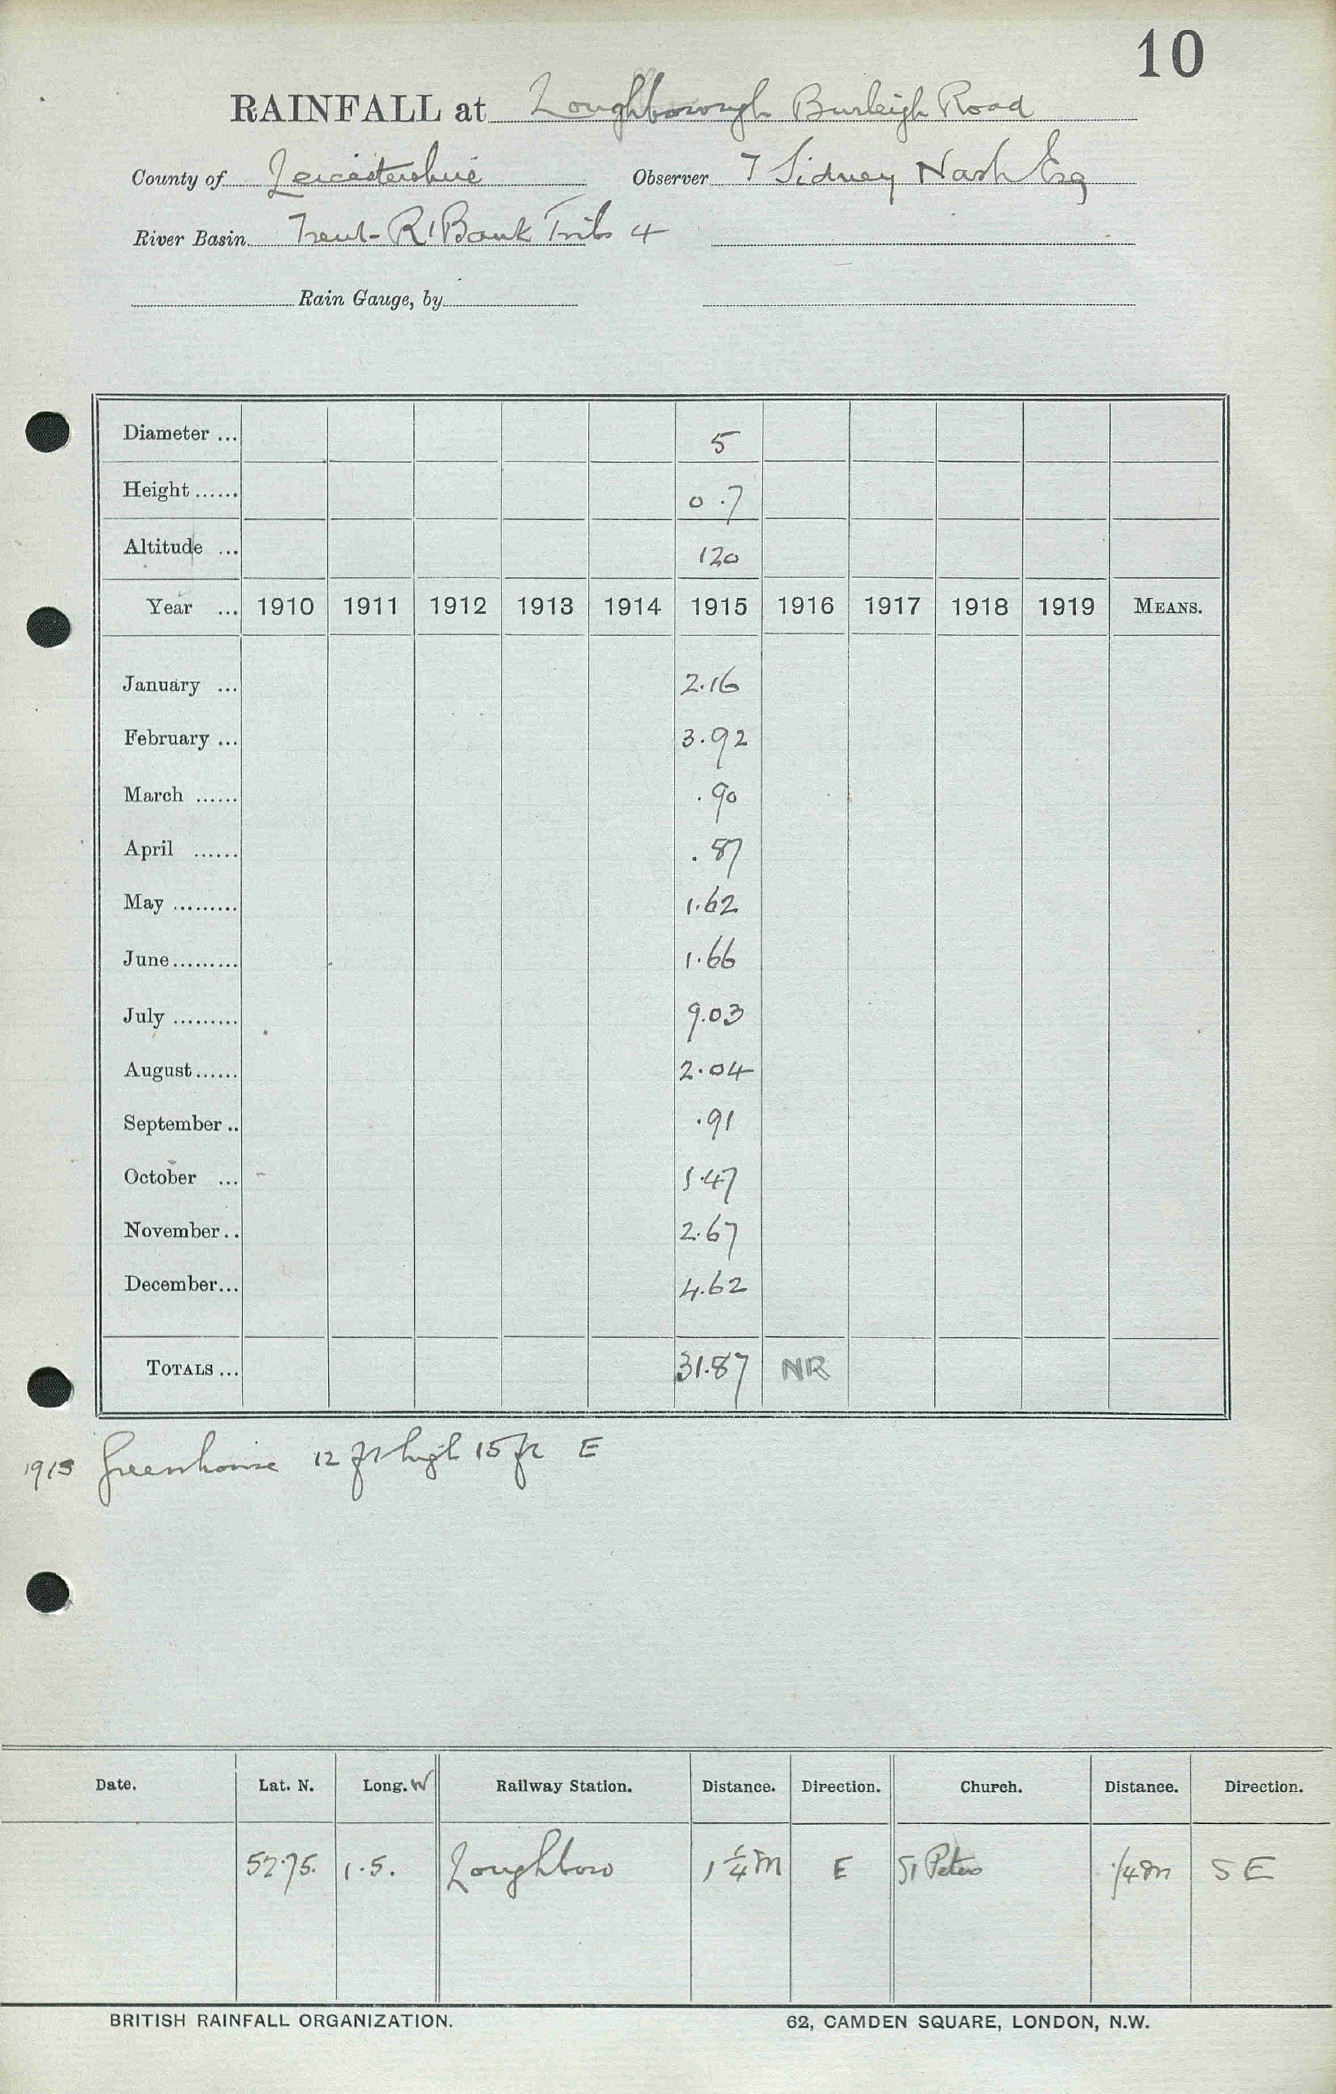 10
RAINFALL at Loughborough Burleigh Road
County of Leicestershire Observer T Sidney Nash Esq
River Basin Trent - R' Bank Tribs 4
Rain Gauge, by
Diameter ... 5
Height ...... 0.7
Altitude ... 120
Year ... 1910 1911 1912 1913 1914 1915 1916 1917 1918 1919 MEANS.
January ... 2.16
February ... 3.92
March ...... .90
April ...... .87
May ......... 1.62
June ......... 1.66
July ......... 9.03
August ...... 2.04
September .. .91
October ... 1.47
November .. 2.67
December ... 4.62
TOTALS ... 31.87 NR
1915 Greenhouse 12 ft high 15 ft E
Date. Lat. N. Long. W Railway Station. Distance. Direction. Church. Distance. Direction.
52.75. 1.5. Loughboro 1 1/4 m E St Peters 1/4 m S E
BRITISH RAINFALL ORGANIZATION. 62, CAMDEN SQUARE, LONDON, N.W.